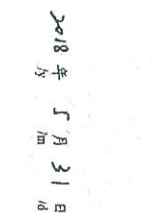 2018年5月31日